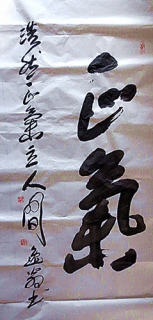 正氣
浩然正氣立人間 翁书